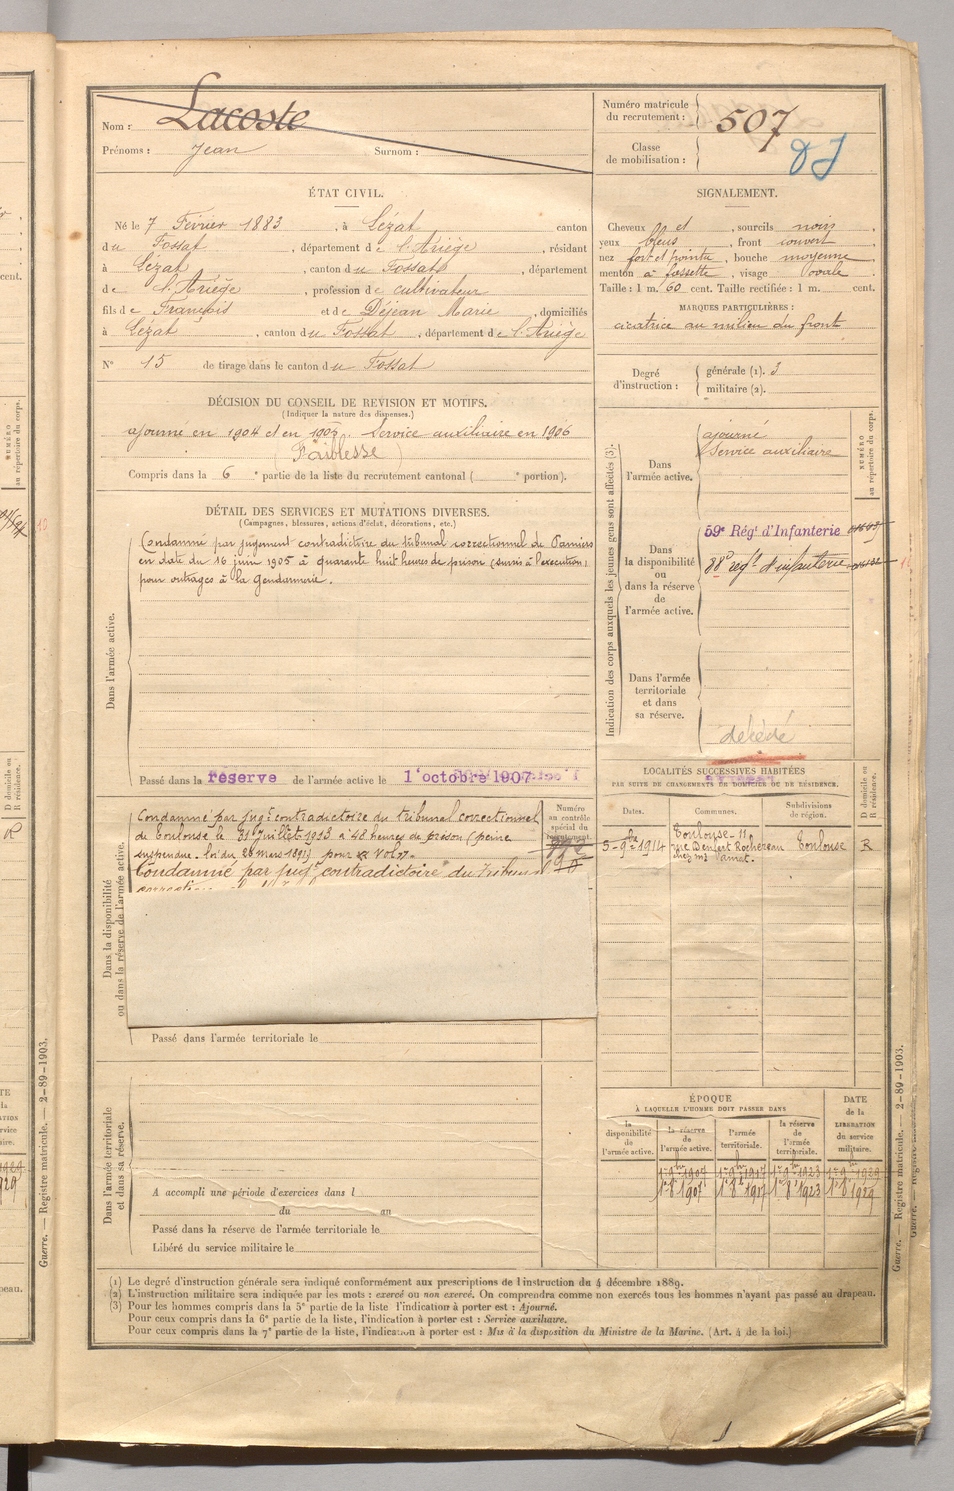 Nom : Lacoste
Prénoms : Jean Surnom :
Numéro matricule du recrutement : 507
Classe de mobilisation :
ÉTAT CIVIL.
Né le 7 Février 1883, à Lézat canton
du Fossat, département de l'Ariège, résidant
à Lézat, canton du Fossat, département
de l'Ariège, profession de cultivateur
fils de François et de Déjean Marie, domiciliés
à Lézat, canton du Fossat, département de l'Ariège
N° 15 de tirage dans le canton du Fossat
SIGNALEMENT.
Cheveux et, sourcils noirs,
yeux bleus, front couvert,
nez fort et pointu, bouche moyenne
menton à fossette, visage ovale
Taille : 1 m. 60 cent. Taille rectifiée : 1 m. cent.
MARQUES PARTICULIÈRES :
cicatrice au milieu du front
Degré d'instruction : générale (1). 3
militaire (2).
DÉCISION DU CONSEIL DE REVISION ET MOTIFS.
(Indiquer la nature des dispenses.)
ajourné en 1904 et en 1905. Service auxiliaire en 1906
(Faiblesse)
Compris dans la 6e partie de la liste du recrutement cantonal ( e portion).
DÉTAIL DES SERVICES ET MUTATIONS DIVERSES.
(Campagnes, blessures, actions d'éclat, décorations, etc.)
Dans l'armée active.
Condamné par jugement contradictoire du tribunal correctionnel de Pamiers
en date du 16 juin 1905 à quarante huit heures de prison (sursis à l'exécution)
pour outrages à la Gendarmerie.
Passé dans la réserve de l'armée active le 1 octobre 1907
Indication des corps auxquels les jeunes gens sont affectés (3).
NUMÉRO au répertoire du corps.
Dans l'armée active.
ajourné
Service auxiliaire
Dans la disponibilité ou dans la réserve de l'armée active.
59e Régt d'Infanterie
88e régt d'infanterie
Dans l'armée territoriale et dans sa réserve.
décédé
LOCALITÉS SUCCESSIVES HABITÉES
PAR SUITE DE CHANGEMENTS DE DOMICILE OU DE RÉSIDENCE.
D domicile ou R résidence.
Dates. Communes. Subdivisions de région.
5-9bre 1914 Toulouse-11, rue Denfert Rochereau Toulouse R
Dans la disponibilité ou dans la réserve de l'armée active.
Numéro au contrôle spécial du recrutement.
Condamné par jugt contradictoire du tribunal correctionnel
de Toulouse le 31 Juillet 1913 à 48 heures de prison (peine
suspendue. loi du 26 mars 1891) pour vol.
Condamné par jugt contradictoire du tribunal
Passé dans l'armée territoriale le
Dans l'armée territoriale et dans sa réserve.
A accompli une période d'exercices dans l
du au
Passé dans la réserve de l'armée territoriale le
Libéré du service militaire le
ÉPOQUE
À LAQUELLE L'HOMME DOIT PASSER DANS
la disponibilité de l'armée active.
la réserve de l'armée active.
l'armée territoriale.
la réserve de l'armée territoriale.
DATE de la LIBÉRATION du service militaire.
1er 9bre 1907 1er 9bre 1917 1er 9bre 1923 1er 9bre 1929
1er 8bre 1907 1er 8bre 1917 1er 8bre 1923 1er 8bre 1929
(1) Le degré d'instruction générale sera indiqué conformément aux prescriptions de l'instruction du 4 décembre 1889.
(2) L'instruction militaire sera indiquée par les mots : exercé ou non exercé. On comprendra comme non exercés tous les hommes n'ayant pas passé au drapeau.
(3) Pour les hommes compris dans la 5e partie de la liste l'indication à porter est : Ajourné.
Pour ceux compris dans la 6e partie de la liste, l'indication à porter est : Service auxiliaire.
Pour ceux compris dans la 7e partie de la liste, l'indication à porter est : Mis à la disposition du Ministre de la Marine. (Art. 4 de la loi.)
Guerre. — Registre matricule. — 2-89-1903.
Guerre. — Registre matricule. — 2-89-1903.